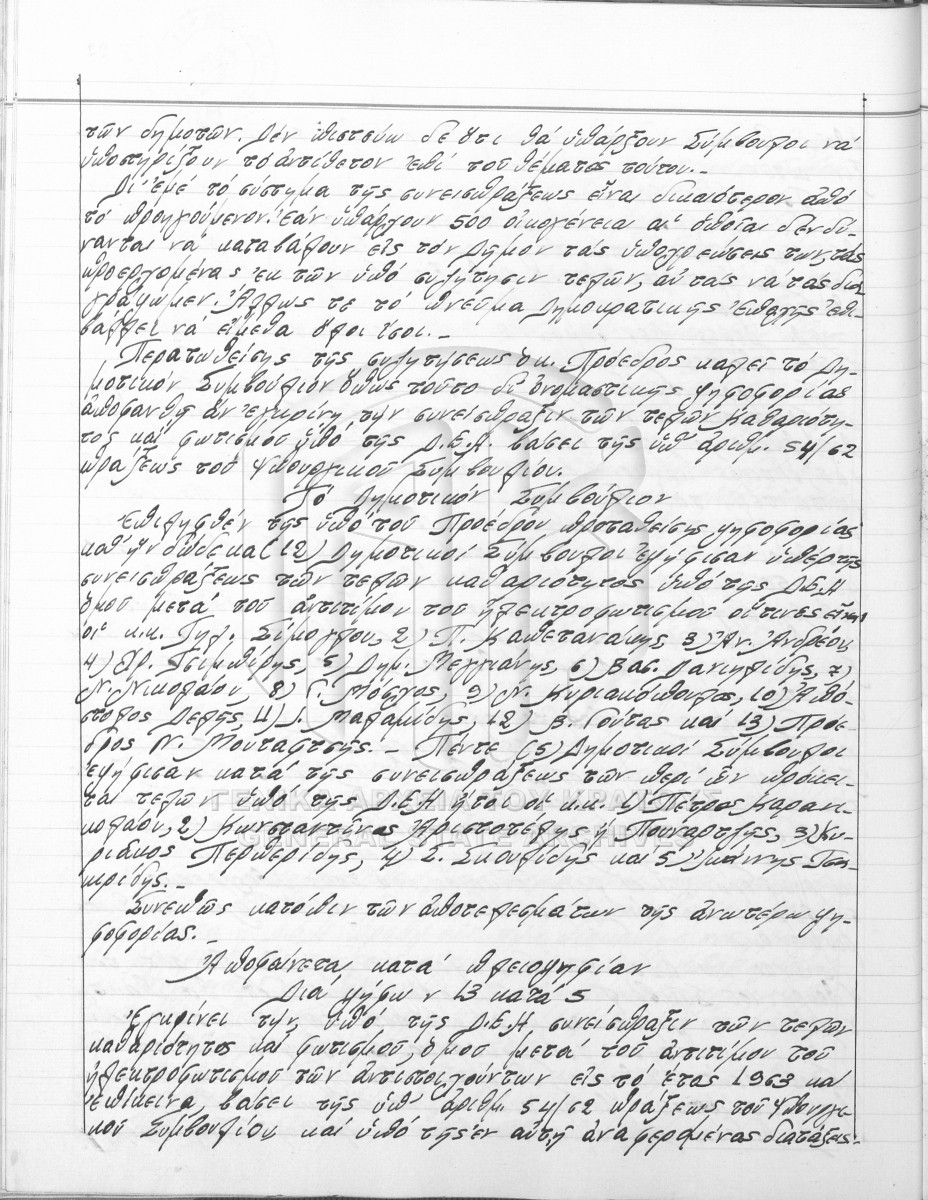 τῶν δημοτῶν. Δέν πιστεύω δέ ὅτι θά ὑπάρξουν Σύμβουλοι νά
ὑποστηρίξουν τό ἀντίθετον ἐπί τοῦ θέματος τούτου.-
Δι' ἐμέ τό σύστημα τῆς συνεισπράξεως εἶναι δικαιότερον ἀπό
τό προηγούμενον. Ἐάν ὑπάρχουν 500 οἰκογένειαι αἱ ὁποῖαι δέν δύ-
νανται νά καταβάλουν εἰς τόν Δῆμον τάς ὑποχρεώσεις των, τάς
προερχομένας ἐκ τῶν ὑπό συζήτησιν τελῶν, αὐτάς νά τάς δια
γράψωμεν. Ἄλλως τε τό πνεῦμα Δημοκρατικῆς ἐποχῆς ἐπι-
βάλλει νά εἴμεθα ὅλοι ἴσοι.-
Περατωθείσης τῆς συζητήσεως ὁ κ. Πρόεδρος καλεῖ τό Δη-
μοτικόν Συμβούλιον ὅπως τοῦτο δι' ὀνομαστικῆς ψηφοφορίας
ἀποφανθῇ ἄν ἐγκρίνῃ τήν συνείσπραξιν τῶν τελῶν καθαριότη-
τος καί φωτισμοῦ ὑπό τῆς Δ.Ε.Η. βάσει τῆς ὑπ' ἀριθμ. 54/62
πράξεως τοῦ Ὑπουργικοῦ Συμβουλίου.
Τό Δημοτικόν Συμβούλιον
Ἐπιληφθέν τῆς ὑπό τοῦ Προέδρου προταθείσης ψηφοφορίας
καθ' ἥν δώδεκα (12) Δημοτικοί Σύμβουλοι ἐψήφισαν ὑπέρ τῆς
συνεισπράξεως τῶν τελῶν καθαριότητος ὑπό τῆς Δ.Ε.Η
ὁμοῦ μετά τοῦ ἀντιτίμου τοῦ ἠλεκτροφωτισμοῦ οἵτινες εἶναι
οἱ κ.κ. Τηλ. Σίμογλου, 2) Π. Καπετανάκης 3) Ἀν. Ἀνδρέου
4) Χρ. Τσιμπίρης, 5) Δημ. Μεγγιάνης, 6) Βασ. Δανιηλίδης, 7)
Ν. Νικολάου, 8) Γ. Μόσχος, 9) Ν. Κυριακόπουλος, 10) Ἀπό-
στολος Δεφῆς, 11) Ι. Μαλαμίδης, 12) Β. Γούτας καί 13) Πρόε-
δρος Ν. Μουταφτσῆς.- Πέντε (5) Δημοτικοί Σύμβουλοι
ἐψήφισαν κατά τῆς συνεισπράξεως τῶν περί ὧν πρόκει-
ται τελῶν ὑπό τῆς Δ.Ε.Η ἤτοι οἱ κ.κ. 1) Πέτρος Καρανι-
κολάου, 2) Κωνσταντῖνος Ἀριστοτέλης ἤ Πουναρτζῆς, 3) Κυ-
ριάκος Περπερίδης, 4) Σ. Σκουφίδης καί 5) Ἰωάννης Τσα-
κιρίδης.-
Συνεπῶς κατόπιν τῶν ἀποτελεσμάτων τῆς ἀνωτέρω ψη-
φοφορίας.-
Ἀποφαίνεται κατά πλειοψηφίαν
Διά ψήφων 13 κατά 5
Ἐγκρίνει τήν ὑπό τῆς Δ.Ε.Η. συνείσπραξιν τῶν τελῶν
καθαριότητος καί φωτισμοῦ, ὁμοῦ μετά τοῦ ἀντιτίμου τοῦ
ἠλεκτροφωτισμοῦ τῶν ἀντιστοιχούντων εἰς τό ἔτος 1963 καί
ἐπέκεινα, βάσει τῆς ὑπ' ἀριθμ. 54/62 πράξεως τοῦ Ὑπουργι-
κοῦ Συμβουλίου καί ὑπό τῆς ἐν αὐτῇ ἀναφερομένας διατάξεις.
ΓΕΝΙΚΑ ΑΡΧΕΙΑ ΤΟΥ ΚΡΑΤΟΥΣ
GENERAL STATE ARCHIVES